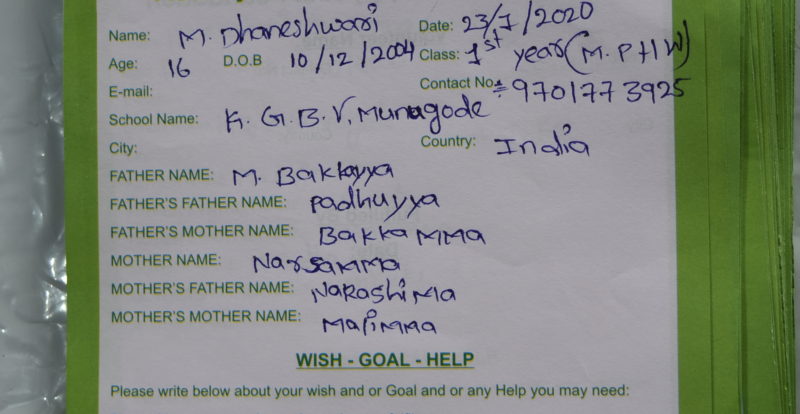 Name: M. Dhaneshwari Date: 23/7/2020
Age: 16 D.O.B 10/12/2004 Class: 1st year (M.P.H.W)
E-mail: Contact No.: 9701773925
School Name: K. G. B. V, Munagode
City: Country: India
FATHER NAME: M. Bakkayya
FATHER'S FATHER NAME: Padhuyya
FATHER'S MOTHER NAME: Bakkamma
MOTHER NAME: Narsamma
MOTHER'S FATHER NAME: Narashima
MOTHER'S MOTHER NAME:
WISH - GOAL - HELP
Please write below about your wish and or Goal and or any Help you may need: